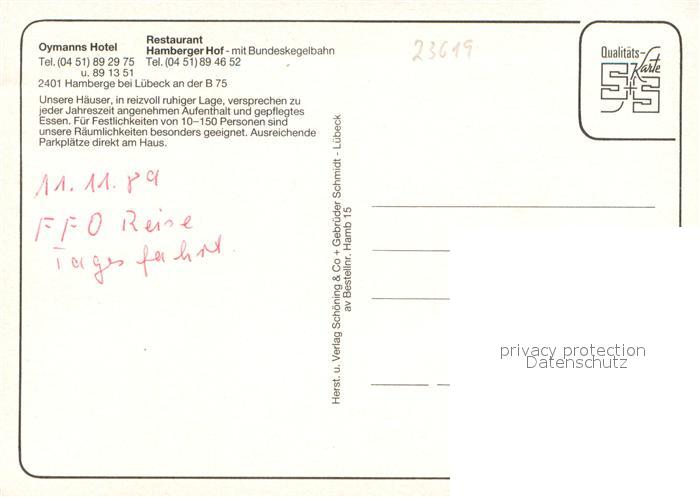 Oymanns Hotel
Tel. (04 51) 89 29 75
u. 89 13 51
Restaurant
Hamberger Hof - mit Bundeskegelbahn
Tel. (04 51) 89 46 52
2401 Hamberge bei Lübeck an der B 75
Unsere Häuser, in reizvoll ruhiger Lage, versprechen zu
jeder Jahreszeit angenehmen Aufenthalt und gepflegtes
Essen. Für Festlichkeiten von 10–150 Personen sind
unsere Räumlichkeiten besonders geeignet. Ausreichende
Parkplätze direkt am Haus.
11. 11. 89
FFO Reise
Tagesfahrt
23619
Qualitäts-
Karte
S+S
Herst. u. Verlag Schöning & Co + Gebrüder Schmidt - Lübeck
av Bestellnr. Hamb 15
privacy protection
Datenschutz